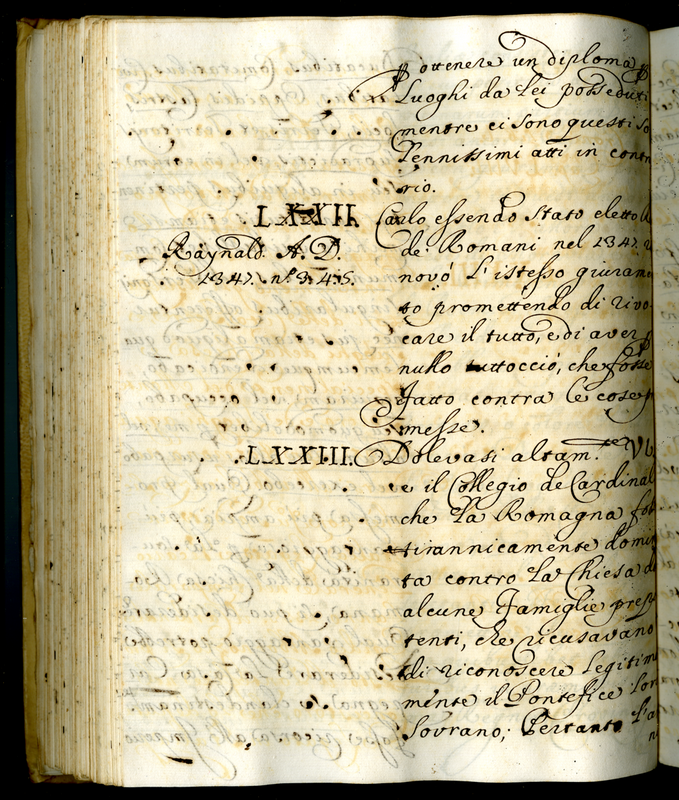 ꝑ ottenere un diploma ꝑ
Luoghi da lei posseduti
mentre ci sono questi so
lennissimi atti in contr
rio.
LXXII. Carlo essendo stato eletto R
Raynald. A. D.
de Romani nel 1347. ri
1347. nº. 3. 4. 5.
novò l'istesso giurame
to promettendo di rivo
care il tutto, e di aver ꝑ
nullo tuttocciò, che fosse
fatto contra le cose p
messe.
LXXIII. Dolevasi altam.te Vr
e il Collegio de Cardinal
che la Romagna fos
tirannicamente domin
ta contro la Chiesa da
alcune famiglie prepo
tenti, che ricusavano
di riconoscere legitima
mente il Pontefice lor
Sovrano; Pertanto l'a